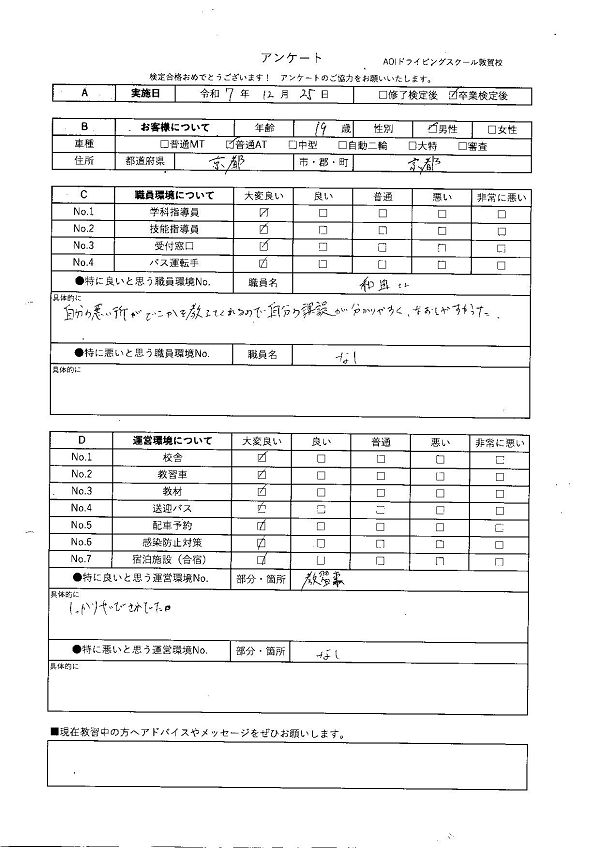 アンケート
AOIドライビングスクール敦賀校
検定合格おめでとうございます！ アンケートのご協力をお願いいたします。
A 実施日 令和 7 年 12 月 25 日 □修了検定後 ☑卒業検定後
B お客様について 年齢 19 歳 性別 ☑男性 □女性
車種 □普通MT ☑普通AT □中型 □自動二輪 □大特 □審査
住所 都道府県 京都 市・郡・町 京都
C 職員環境について 大変良い 良い 普通 悪い 非常に悪い
No.1 学科指導員 ☑ □ □ □ □
No.2 技能指導員 ☑ □ □ □ □
No.3 受付窓口 ☑ □ □ □ □
No.4 バス運転手 ☑ □ □ □ □
●特に良いと思う職員環境No. 職員名
具体的に
自分の悪い所がどこかを教えてくれるので自分の課題が分かりやすく、なおしやすかった。
●特に悪いと思う職員環境No. 職員名 なし
具体的に
D 運営環境について 大変良い 良い 普通 悪い 非常に悪い
No.1 校舎 ☑ □ □ □ □
No.2 教習車 ☑ □ □ □ □
No.3 教材 ☑ □ □ □ □
No.4 送迎バス ☑ □ □ □ □
No.5 配車予約 ☑ □ □ □ □
No.6 感染防止対策 ☑ □ □ □ □
No.7 宿泊施設（合宿） ☑ □ □ □ □
●特に良いと思う運営環境No. 部分・箇所 教習車
具体的に
●特に悪いと思う運営環境No. 部分・箇所 なし
具体的に
■現在教習中の方へアドバイスやメッセージをぜひお願いします。